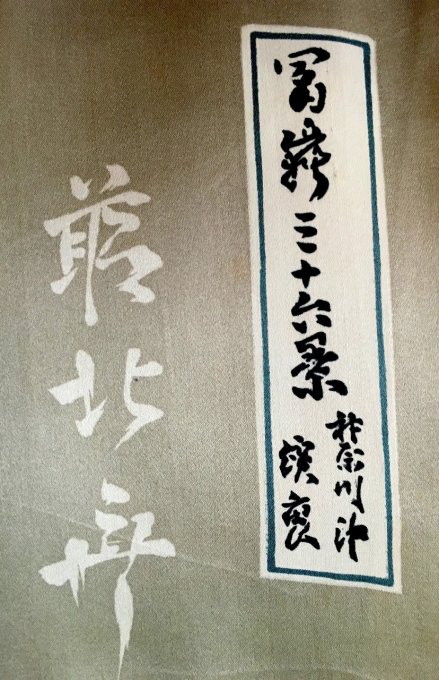 冨嶽三十六景
神奈川沖
浪裏
前北斎